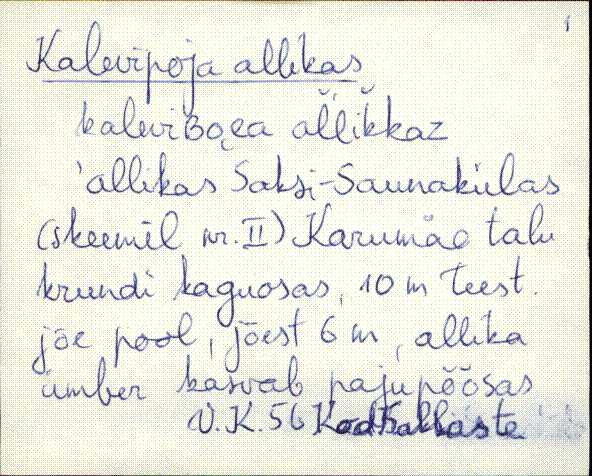 1
Kalevipoja allikas
kaleviBoea allikkaz
'allikas Saksi-Saunakülas
(skeemil nr. II) Karumäe talu
krundi kaguosas, 10 m teest
jõe pool, jõest 6 m, allika
ümber kasvab pajupõõsas
V. K. 56